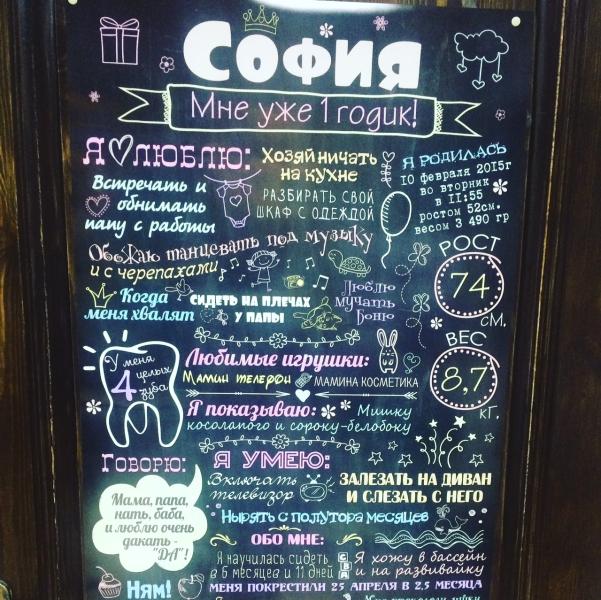 СОФИЯ
Мне уже 1 годик!
Я ЛЮБЛЮ:
Встречать и
обнимать
папу с работы
Хозяйничать
на кухне
РАЗБИРАТЬ СВОЙ
ШКАФ С ОДЕЖДОЙ
Я РОДИЛАСЬ
10 февраля 2015г
во вторник
в 11:55
ростом 52см.
весом 3 490 гр
Обожаю танцевать под музыку
и с черепахами
Когда
меня хвалят
СИДЕТЬ НА ПЛЕЧАХ
У ПАПЫ
Люблю
мучать
Боню
РОСТ
74
СМ.
У меня
4 целых
зуба
Любимые игрушки:
Мамин телефон
МАМИНА КОСМЕТИКА
Я показываю: Мишку
косолапого и сороку-белобоку
ВЕС
8,7
КГ.
Говорю:
Мама, папа,
нать, баба,
и люблю очень
дакать -
"ДА"!
Ням!
Я УМЕЮ:
Включать
телевизор
ЗАЛЕЗАТЬ НА ДИВАН
И СЛЕЗАТЬ С НЕГО
Нырять с полутора месяцев
ОБО МНЕ:
Я научилась сидеть
в 6 месяцев и 11 дней
Я хожу в бассейн
и на развивайку
МЕНЯ ПОКРЕСТИЛИ 25 АПРЕЛЯ В 2,5 МЕСЯЦА